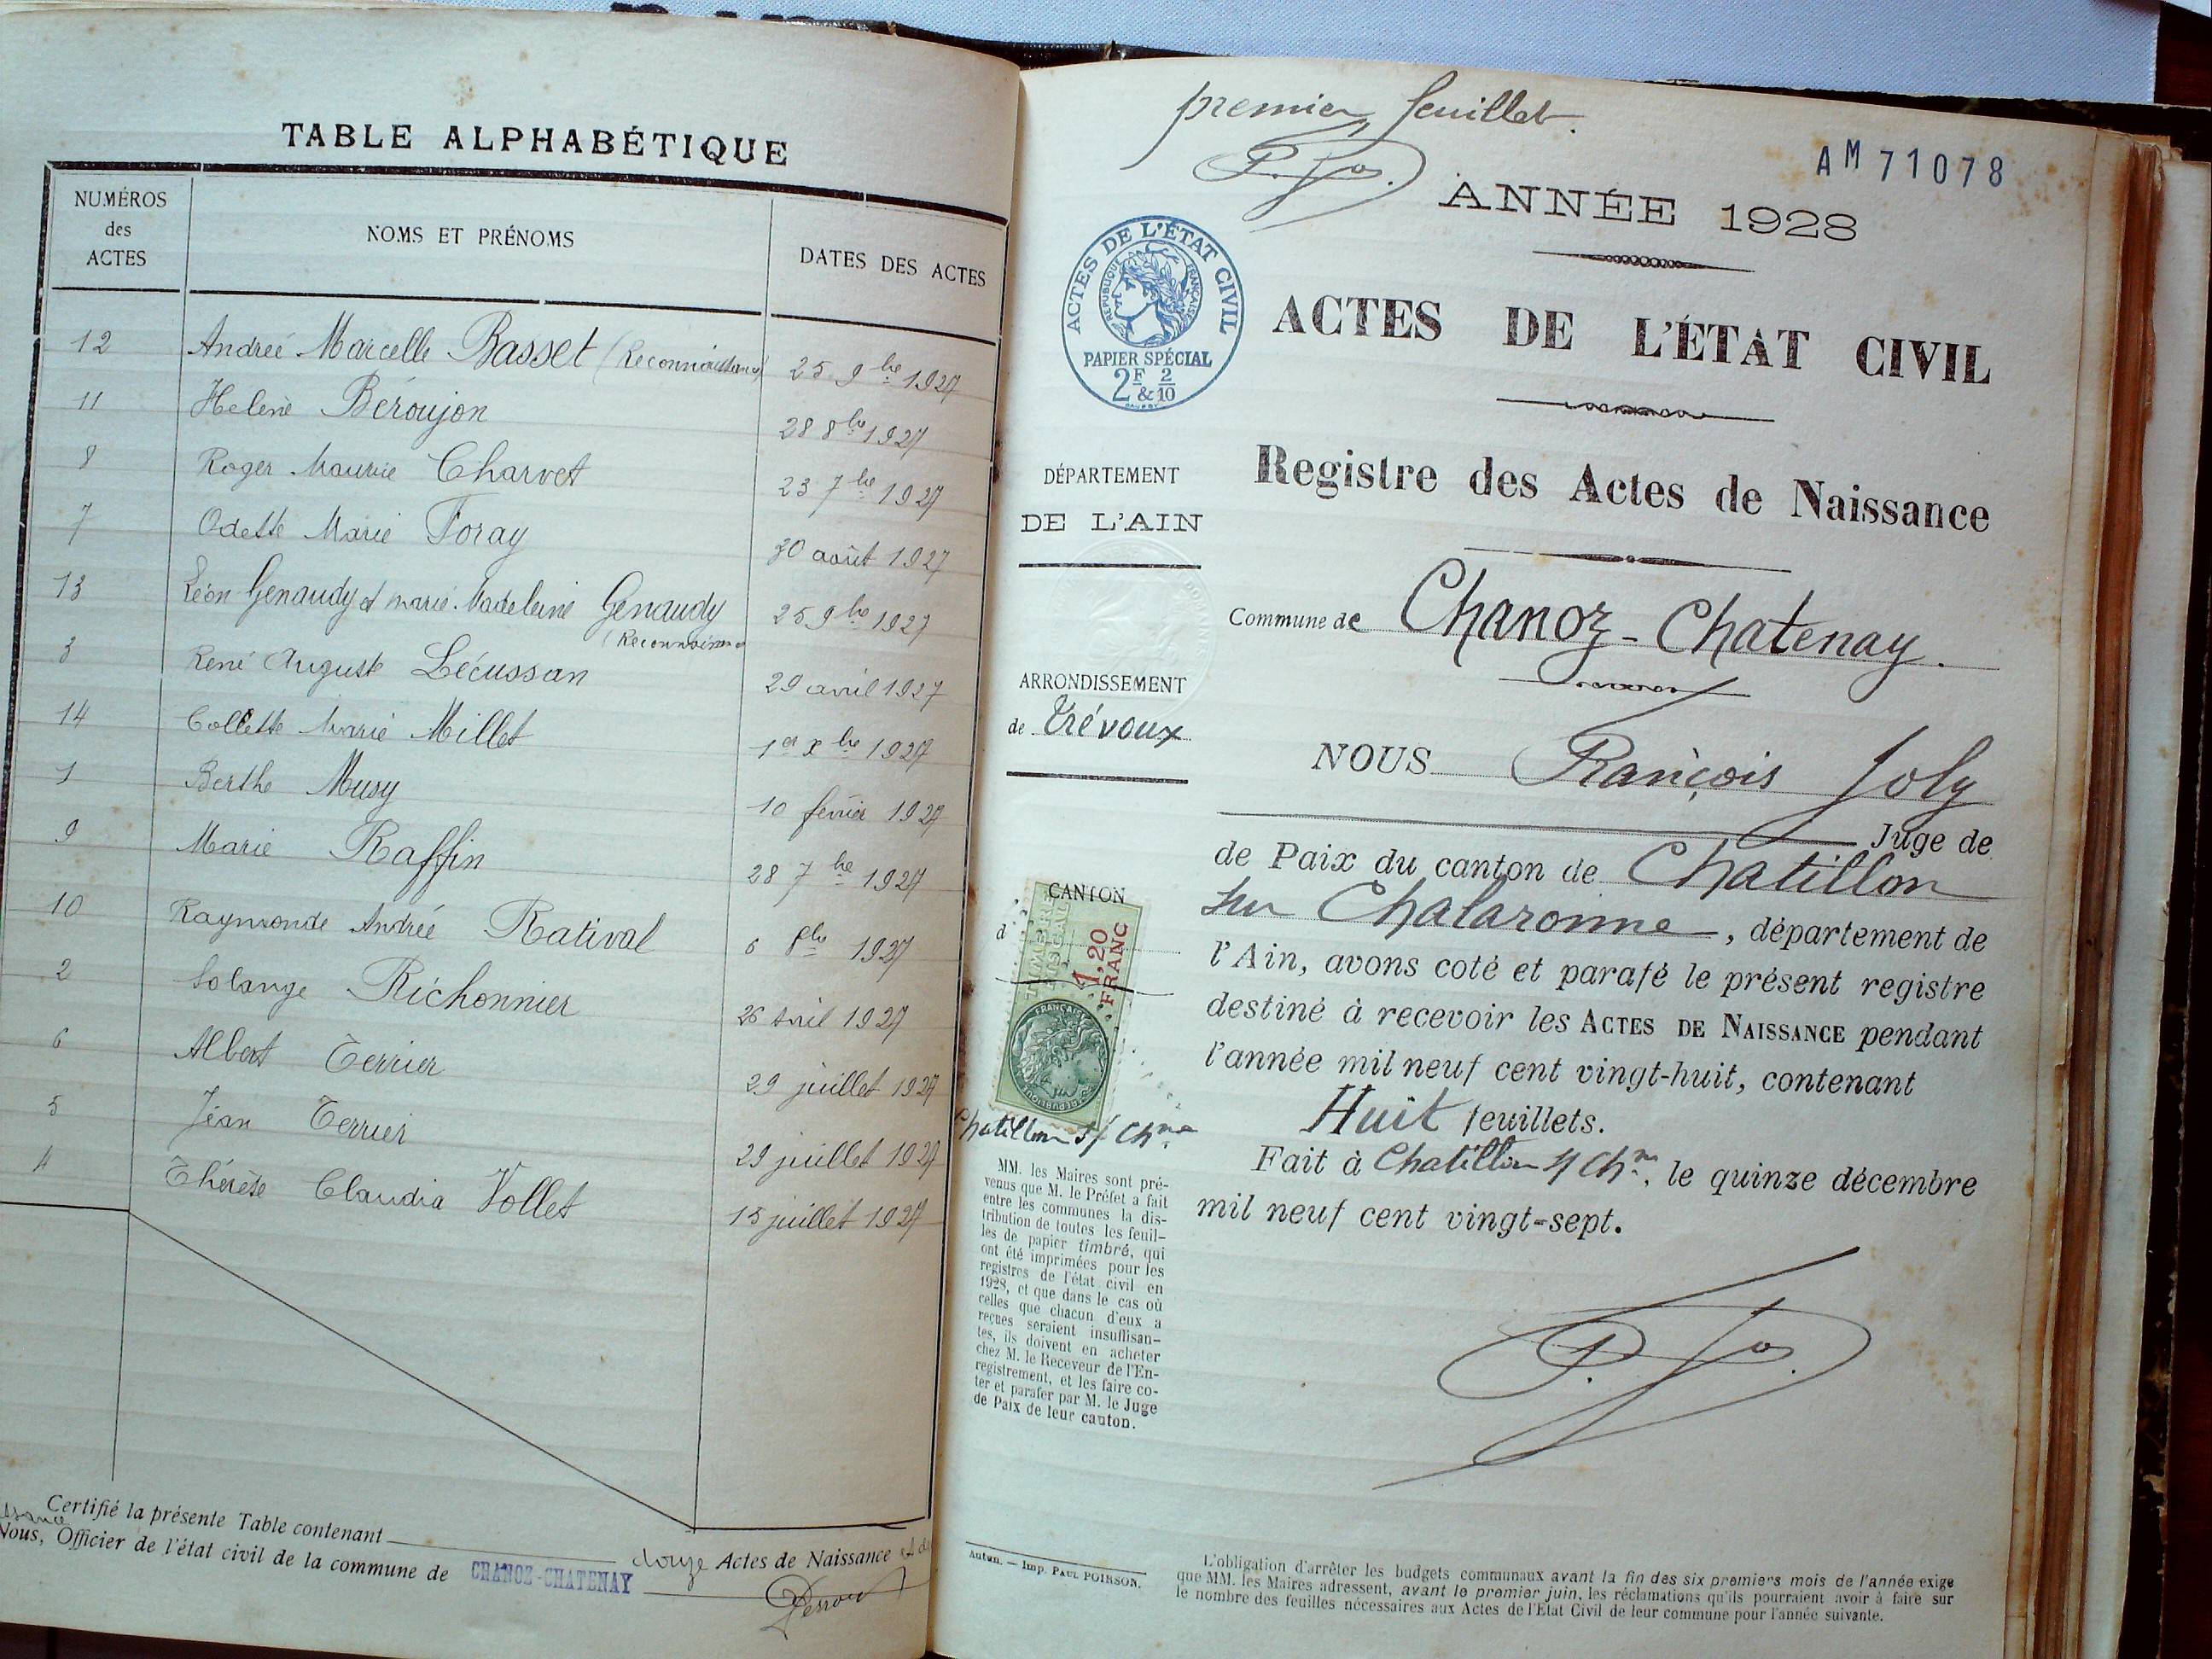 TABLE ALPHABÉTIQUE
NUMÉROS des ACTES
NOMS ET PRÉNOMS
DATES DES ACTES
12 Andrée Marcelle Basset (Reconnaissance) 25 9bre 1927
11 Helène Béroujon 28 8bre 1927
8 Roger Maurice Charvet 23 7bre 1927
7 Odette Marie Foray 30 août 1927
13 Léon Genaudy et marie-Madeleine Genaudy 25 9bre 1927
(Reconnaissance
3 René Auguste Lécussan 29 avril 1927
14 Collette Marie Millet 1er Xbre 1927
1 Berthe Musy 10 février 1927
9 Marie Raffin 28 7bre 1927
10 Raymonde Andrée Rativol 6 8bre 1927
2 Solange Richonnier 26 avril 1927
6 Albert Terrier 29 juillet 1927
5 Jean Terrier 29 juillet 1927
4 Thérèse Claudia Vollet 15 juillet 1927
Certifié la présente Table contenant douze Actes de Naissance et de
Nous, Officier de l'état civil de la commune de CHANOZ-CHATENAY
premier feuillet.
AM 71078
ANNÉE 1928
ACTES DE L'ÉTAT CIVIL
RÉPUBLIQUE FRANÇAISE
PAPIER SPÉCIAL
2F & 2/10
ACTES DE L'ÉTAT CIVIL
Registre des Actes de Naissance
DÉPARTEMENT
DE L'AIN
Commune de Chanoz-Chatenay.
ARRONDISSEMENT
de Trévoux
NOUS François Joly
Juge de
de Paix du canton de Chatillon
sur Chalaronne, département de
l'Ain, avons coté et parafé le présent registre
destiné à recevoir les ACTES DE NAISSANCE pendant
l'année mil neuf cent vingt-huit, contenant
Huit feuillets.
Fait à Chatillon s/ Chne, le quinze décembre
mil neuf cent vingt-sept.
CANTON
d
1,20
FRANC
Chatillon s/ Chne
MM. les Maires sont pré-
venus que M. le Préfet a fait
entre les communes la dis-
tribution de toutes les feuil-
les de papier timbré, qui
ont été imprimées pour les
registres de l'état civil en
1928, et que dans le cas où
celles que chacun d'eux a
reçues seraient insuffisan-
tes, ils doivent en acheter
chez M. le Receveur de l'En-
registrement, et les faire co-
ter et parafer par M. le Juge
de Paix de leur canton.
Autun. — Imp. PAUL POIRSON.
L'obligation d'arrêter les budgets communaux avant la fin des six premiers mois de l'année exige
que MM. les Maires adressent, avant le premier juin, les réclamations qu'ils pourraient avoir à faire sur
le nombre des feuilles nécessaires aux Actes de l'Etat Civil de leur commune pour l'année suivante.